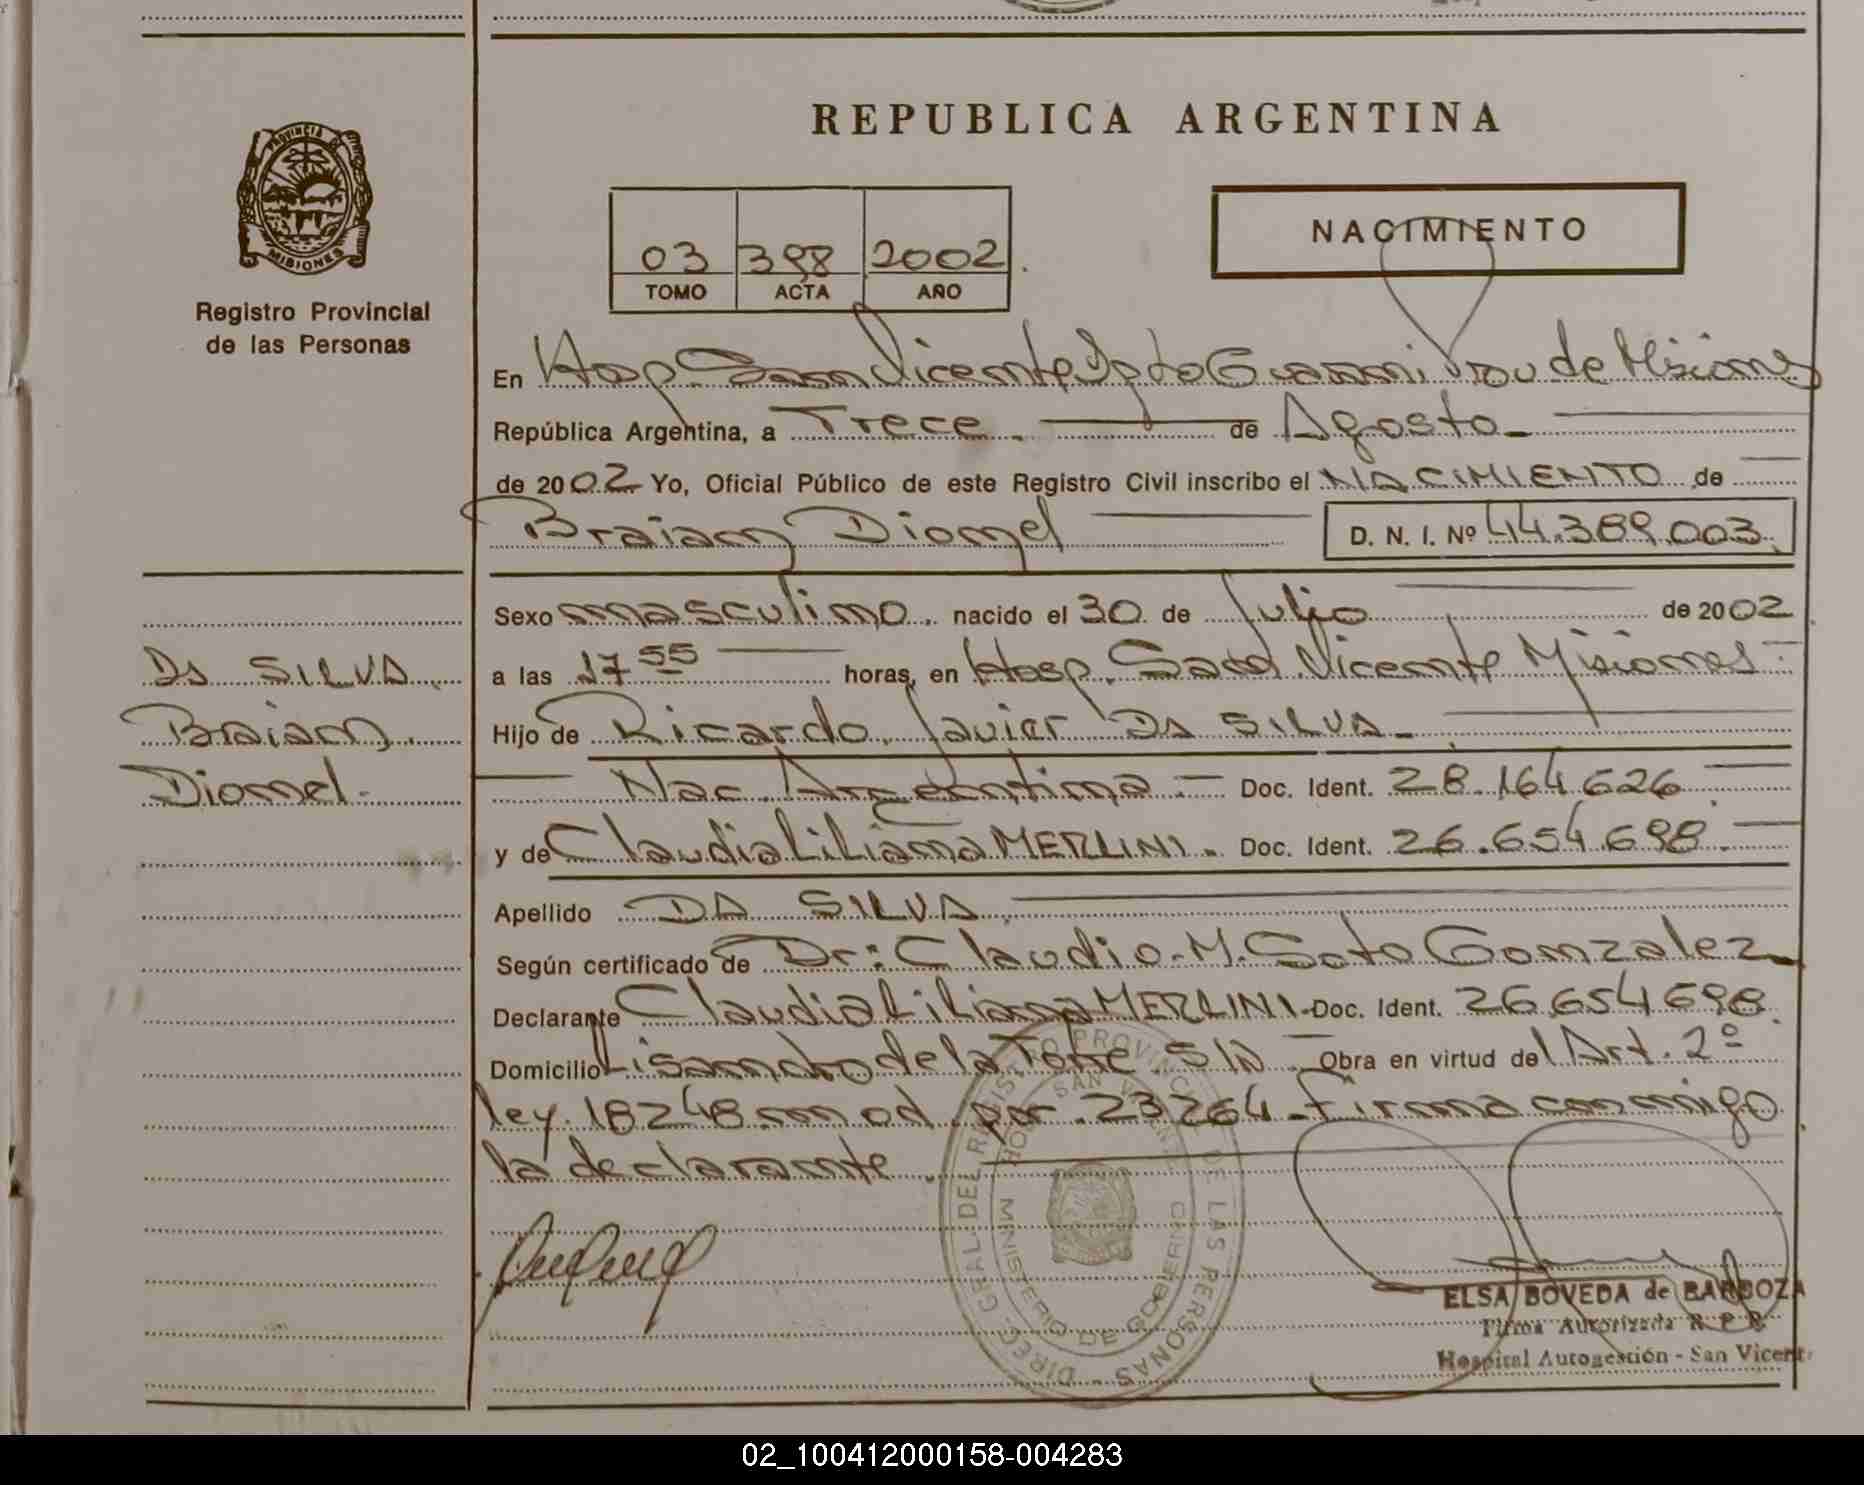 PROVINCIA DE
MISIONES
Registro Provincial
de las Personas
REPUBLICA ARGENTINA
03 398 2002
TOMO ACTA AÑO
NACIMIENTO
En Hosp. San Vicente Dpto Guarani Prov de Misiones
República Argentina, a Trece. de Agosto
de 2002 Yo, Oficial Público de este Registro Civil inscribo el NACIMIENTO de
Braian Dionel D. N. I. Nº 44.389.003
Sexo masculino. nacido el 30 de Julio de 2002
a las 17 55 horas, en Hosp. Saed. Vicente Misiones
Hijo de Ricardo Javier DA SILVA
Nac. Argentina Doc. Ident. 28.164.626
y de Claudia Liliana MERLINI. Doc. Ident. 26.654.698.
Apellido DA SILVA
Según certificado de Dr: Claudio. M. Soto Gonzalez
Declarante Claudia Liliana MERLINI. Doc. Ident. 26.654.698.
Domicilio Lisandro de la Torre S/N Obra en virtud del Art. 2º
ley. 18248 mod. por 23264 Firma conmigo
la declarante
DA SILVA
Braian
Dionel
DIREC. GRAL. DEL REGISTRO PROVINCIAL DE LAS PERSONAS
MINISTERIO DE GOBIERNO
SAN VICENTE
ELSA BOVEDA de BARBOZA
Firma Autorizada R. P. P.
Hospital Autogestión - San Vicente
02_100412000158-004283